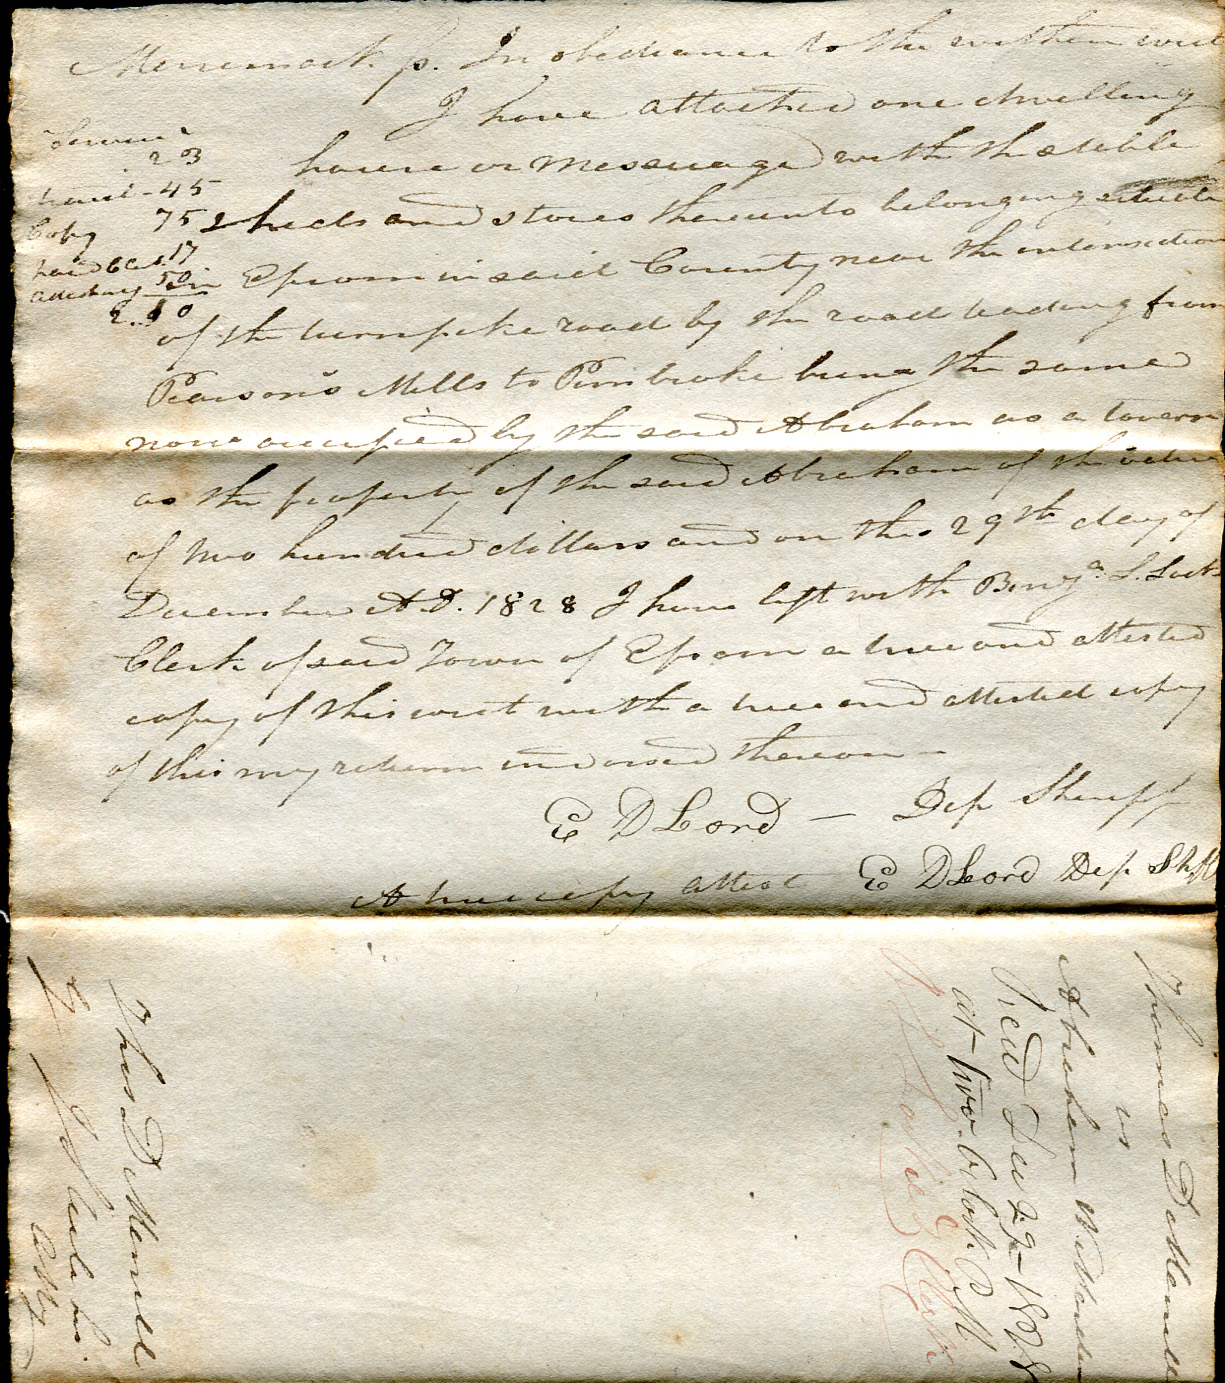 Merrimack ss. In obedience to the within writ
I have attached one dwelling
house or messuage with the stable
sheds and stores thereunto belonging situate
in Epsom in said County near the intersection
of the turnpike road by the road leading from
Pearson's Mills to Pembroke being the same
now occupied by the said Abraham as a tavern
as the property of the said Abraham of the value
of two hundred dollars and on this 29th day of
December A.D. 1828 I have left with Benja. L. Locke
Clerk of said Town of Epsom a true and attested
copy of this writ with a true and attested copy
of this my return indorsed thereon —
E D Lord — Dep Sheriff
A true copy attest E D Lord Dep Shff
Service
23
travel - 45
Copy 75
paid Clk .17
attesting 50
2.10
Thomas D Merrill
vs
Abraham W
Recd Dec 29 - 1828
at two O Clock P M
B L Locke Clerk
Thos D Merrill
by
Atty